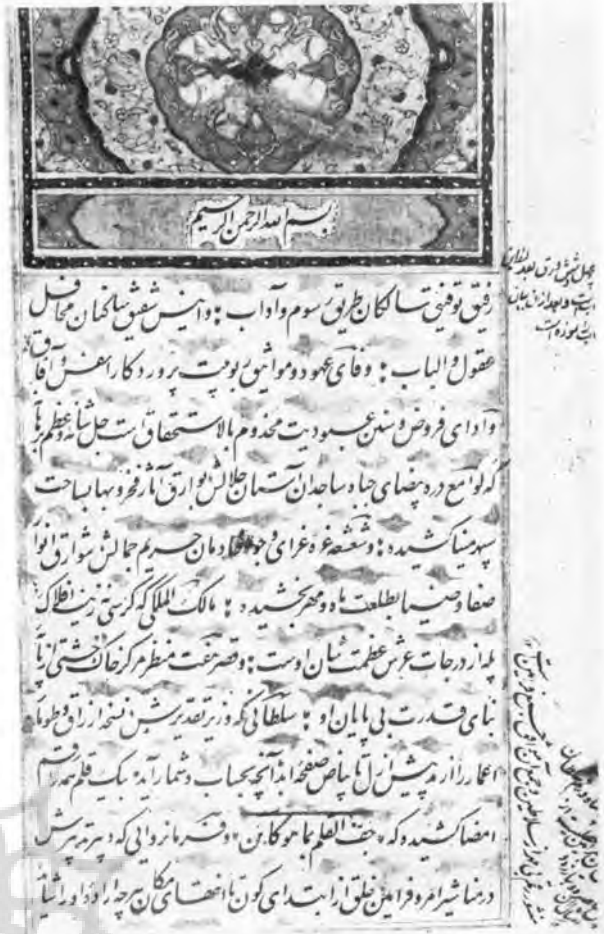 بسم الله الرحمن الرحیم
رفیق توفیق سالکان طریق رسوم و آداب ؛ و انیس شفیق ساکنان محافل
عقول و الباب ؛ وفای عهود و مواثیق ربوبیت پروردگار انفس و آفاق
و ادای فروض و سنن عبودیت مخدوم بالاستحقاق است جل شانه و عظم برهانه
که لوامع دره بیضای جباه ساجدان آستان جلالش بوارق آثار فخر و بها بساحت
سپهر مینا کشیده ؛ و شعشعه غره غرای وجوه خادمان حریم جمالش شوارق انوار
صفا و ضیا بطلعت ماه و مهر بخشیده ؛ مالک الملکی که کرسی زرینه افلاک
پله از درجات عرش عظمت شان اوست ؛ و قصر هفت منظر مرکز خاک خشتی از
بنای قدرت بی پایان او ؛ سلطانی که وزیر تقدیرش نسخه ارزاق و طومار
اعمار را از مد پیش ازل تا بیاض صفحه ابد آنچه بحساب و شمار آید بیک قلم رقم
امضا کشیده که جف القلم بما هو کائن ؛ و فرمانروایی که دبیر تدبیرش
در مناشیر امر و فرامین خلق از ابتدای کون تا انتهای مکان هرچه اراده او
چهل و شش ورق
است و بعد از